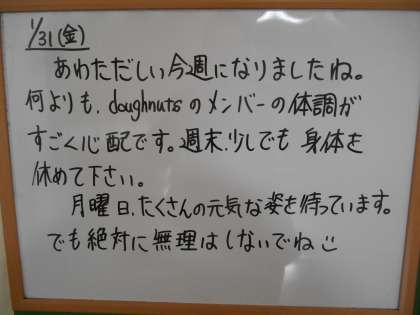 1/31(金)
あわただしい今週になりましたね。
何よりも、doughnutsのメンバーの体調が
すごく心配です。週末、少しでも身体を
休めて下さい。
月曜日、たくさんの元気な姿を待っています。
でも絶対に無理はしないでね